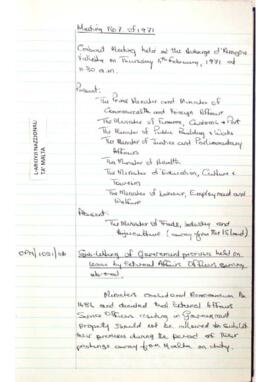 Meeting No 7 of 1971
Cabinet Meeting held at the Auberge d'Aragon
Valletta on Thursday, February, 1971 at
.30 a.m.
Present:
The Prime Minister and Minister of
Commonwealth and Foreign Affairs
The Minister of Finance, Customs & Port
The Minister of Public Building & Works
The Minister of Justice and Parliamentary
Affairs
The Minister of Health
The Minister of Education, Culture &
Tourism
The Minister of Labour, Employment and
Welfare
Absent:
The Minister of Trade, Industry and
Agriculture (away from the Island)
L-ARKIVJI NAZZJONALI
TA' MALTA
OPM/
Sub-letting of Government premises held on
lease by External Affairs Officers serving
abroad.
Ministers considered Memorandum No
1484 and decided that External Affairs
Service Officers residing in Government
property should not be allowed to sublet
their premises during the period of their
postings away from Malta on duty.